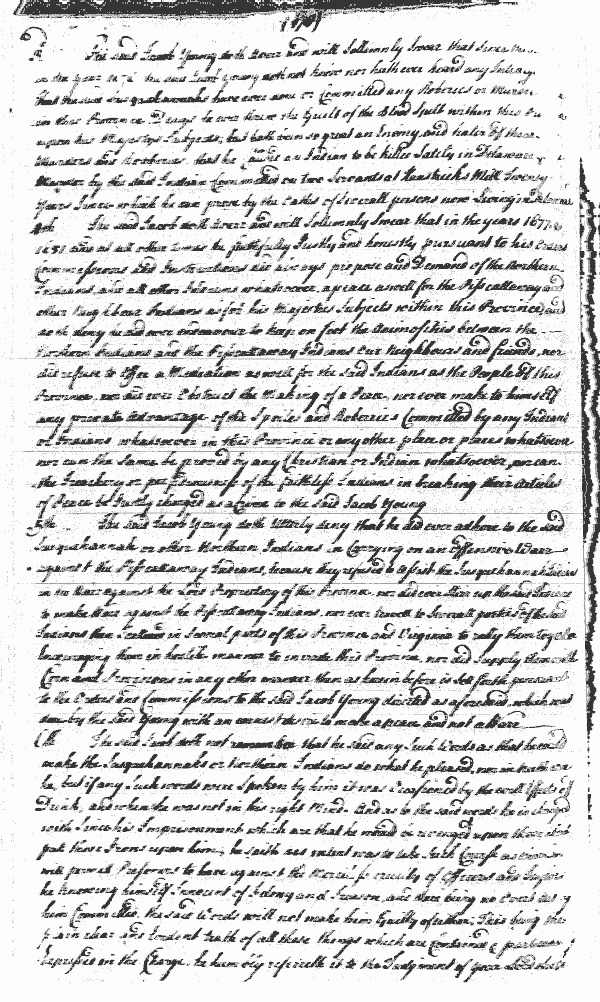 3d The said Jacob Young doth Averr and will Sollemnly Swear that Since the
in the year 167 the said Jacob Young doth not know nor hath ever heard any Intelig
that the said Susquehannahs have ever done or Committed any Roberies or Murders
in this Province
upon his Majestys Subjects, but hath been so great an Enemy and hater of their
Murders and Roberies that he Caused an Indian to be killed lately in Delaware
by the said Indian Committed on two Servants at Mill Twenty
Years Since which he can prove by the Oaths of Severall persons now Living in Delaware
4th The said Jacob doth Averr and will Sollemnly Swear that in the years 1677
1681 and at all other times he faithfully Justly and honestly pursuant to his Orders
Commissions and Instructions did always propose and Demand of the Northern
Indians, and all other Indians whatsoever, a peace as well for the Piscattaway and
other Neighbour Indians as for his Majestys Subjects within this Province, and
doth deny he did ever endeavour to keep on foot the Animosities between the
Northern Indians and the Piscattaway Indians Our Neighbours and friends, nor
did refuse to Offer a Mediation as well for the said Indians as the People of this
Province, nor did ever Obstruct the Making of a Peace, nor ever make to himself
any private Advantage of the Spoiles and Roberies Committed by any Indians
or Indians whatsoever in this Province or any other place or places whatsoever
nor can the Same be proved by any Christian or Indian whatsoever, nor can
the Treachery or perfidiousness of the faithless Indians in breaking their Articles
of Peace be Justly charged as a Crime to the said Jacob Young
5th The said Jacob Young doth Utterly deny that he did ever adhere to the said
Susquehannah or other Northern Indians in Carrying on an Offensive Warr
against the Piscattaway Indians, because they refused to assist the Susquehannah Indians
in the Warr against the Lord Proprietary of this Province, nor did ever Stirr up the said Indians
to make Warr against the Piscattaway Indians, nor ever travell to Severall parties of the said
Indians then Scattered in Several parts of this Province and Virginia to rally them together
Encouraging them in hostile manner to invade this Province, nor did Supply them with
Corn and Provisions in any other manner then as herein before is Sett forth pursuant
to the Orders and Commissions to the said Jacob Young directed as aforesaid, which was
done by the said Young with an earnest desire to make a peace and not a Warr
6th The said Jacob doth not remember that he said any Such Words as that he could
make the Susquehannahs or Northern Indians do what he pleased, nor in truth can
he, but if any Such words were Spoken by him it was Occasioned by the evill Effects of
Drink, and when he was not in his right Mind. And as to the said words he is charged
with Since his Imprisonment which are that he would be revenged upon those that
put those Irons upon him, he saith his intent was to take Such Course as
will permit Prisoners to have against the Merciless cruelty of Officers and
he knowing himself Innocent of Felony and Treason, and there being no
him Committed, the said Words will not make him Guilty of either, This being the
plain clear and Evident truth of all those things which are Contained & particularly
Expressed in the Charge, he humbly referreth it to the Judgment of your